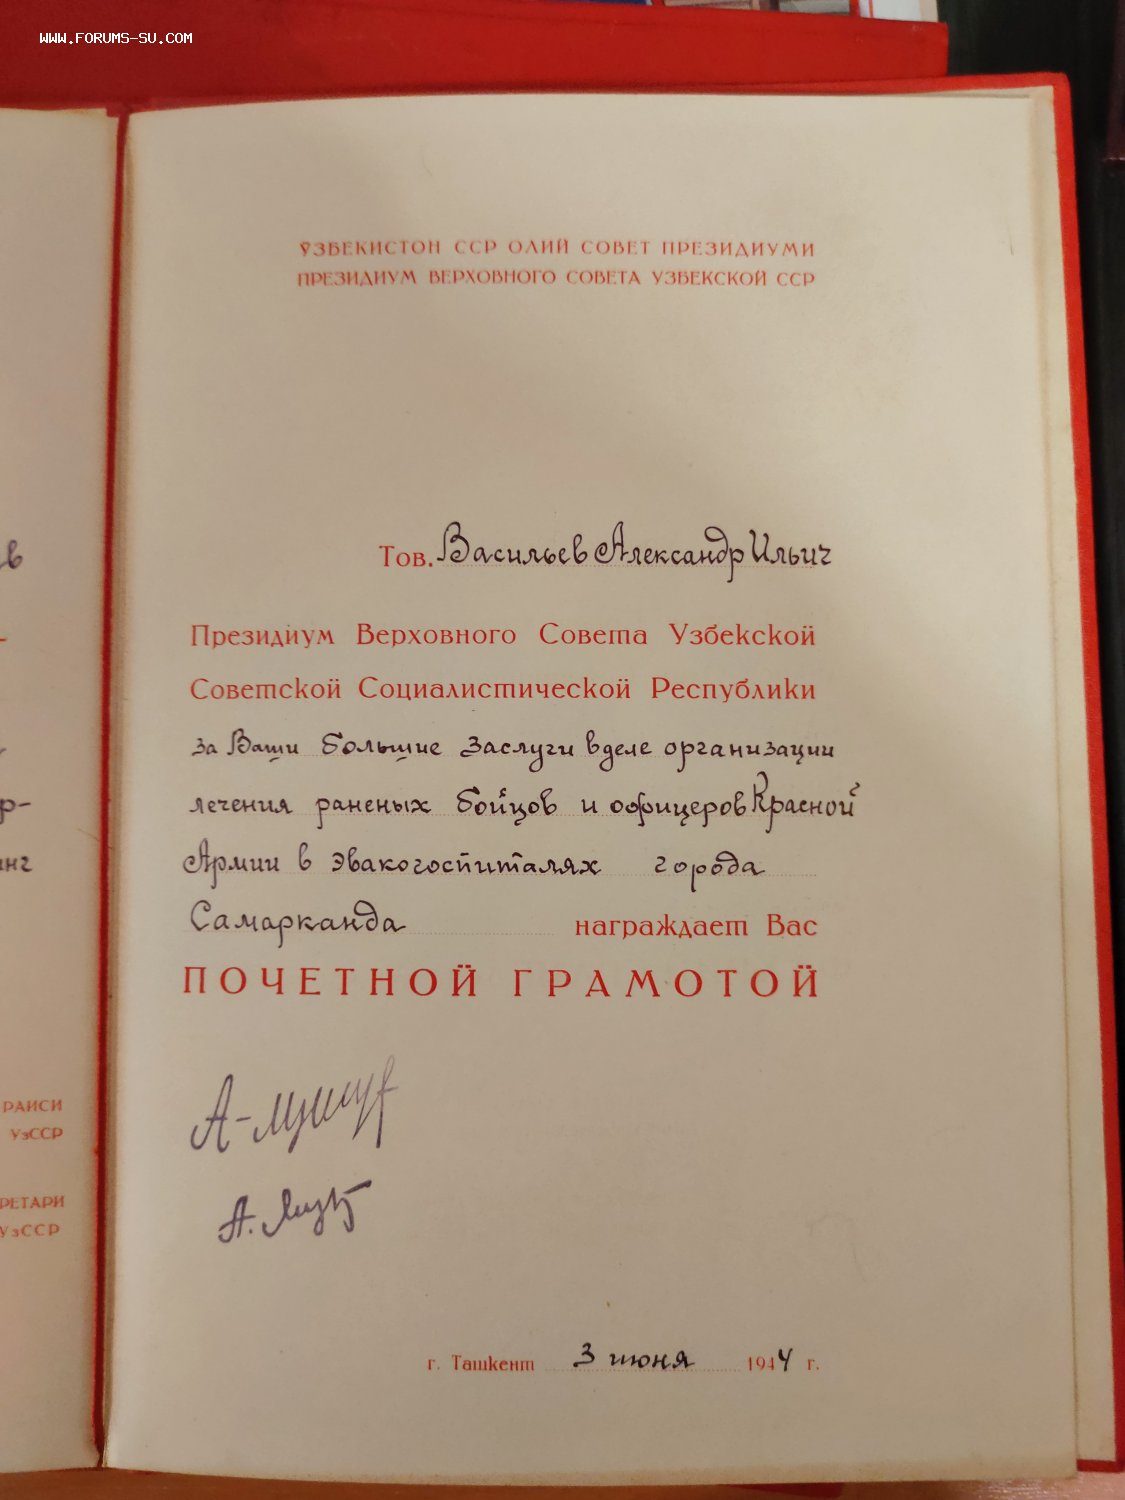 WWW.FORUMS-SU.COM
ЎЗБЕКИСТОН ССР ОЛИЙ СОВЕТ ПРЕЗИДИУМИ
ПРЕЗИДИУМ ВЕРХОВНОГО СОВЕТА УЗБЕКСКОЙ ССР
Тов. Васильев Александр Ильич
Президиум Верховного Совета Узбекской
Советской Социалистической Республики
за Ваши большие заслуги в деле организации
лечения раненых бойцов и офицеров Красной
Армии в эвакогоспиталях города
Самарканда награждает Вас
ПОЧЕТНОЙ ГРАМОТОЙ
г. Ташкент 3 июня 1944 г.
РАИСИ
УзССР
УзССР